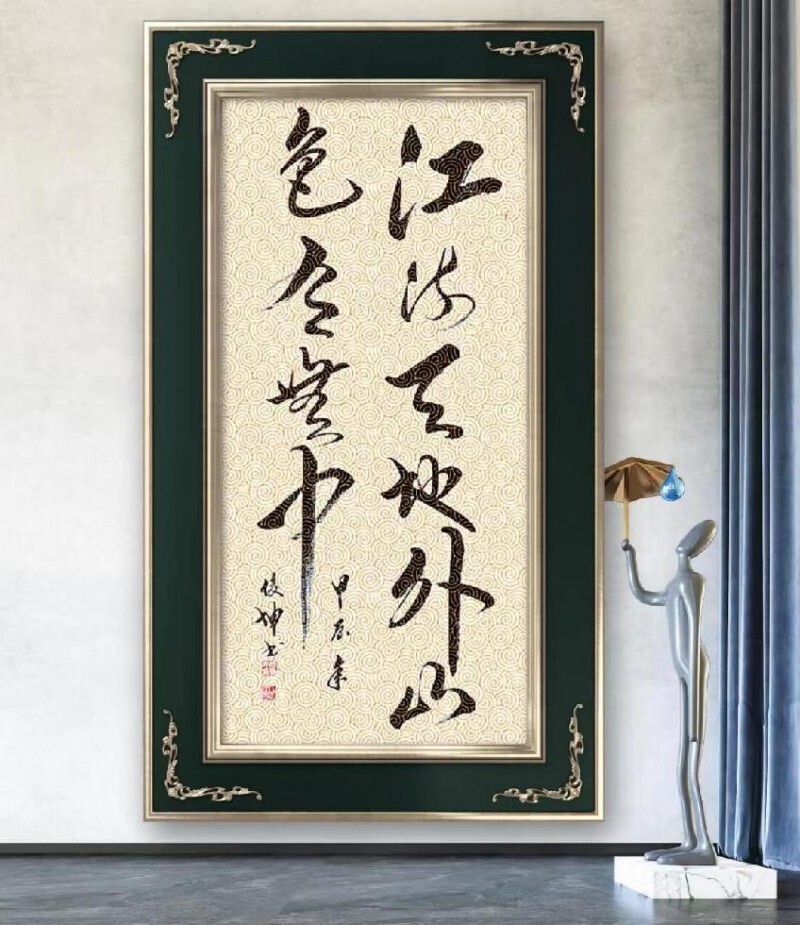 江流天地外山
色有無中
甲辰年
俊坤书